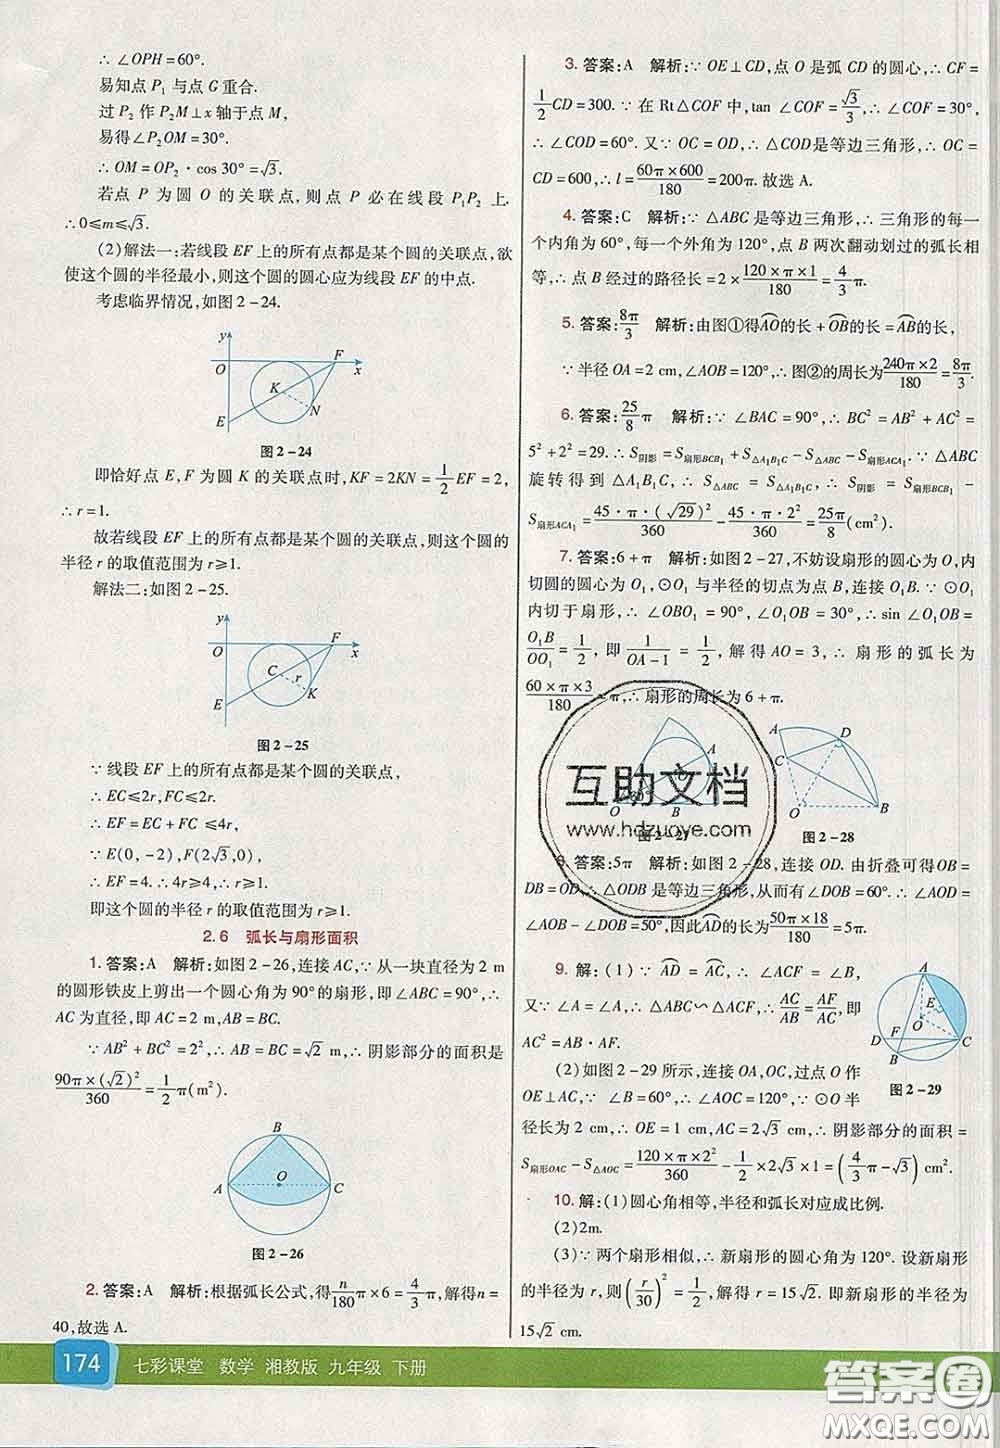 ∴ ∠OPH=60°.
易知点 P₁ 与点 G 重合.
过 P₂ 作 P₂M⊥x 轴于点 M,
易得∠P₂OM=30°.
∴ OM=OP₂·cos 30°=√3.
若点 P 为圆 O 的关联点,则点 P 必在线段 P₁P₂ 上.
∴0≤m≤√3.
(2)解法一:若线段 EF 上的所有点都是某个圆的关联点,欲
使这个圆的半径最小,则这个圆的圆心应为线段 EF 的中点.
考虑临界情况,如图 2-24.
y
F
O
x
K
N
E
图 2-24
即恰好点 E,F 为圆 K 的关联点时,KF=2KN=1/2EF=2,
∴ r=1.
故若线段 EF 上的所有点都是某个圆的关联点,则这个圆的
半径 r 的取值范围为 r≥1.
解法二:如图 2-25.
y
F
O
x
C
r
K
E
图 2-25
∵ 线段 EF 上的所有点都是某个圆的关联点,
∴ EC≤2r,FC≤2r.
∴ EF=EC+FC≤4r,
∵ E(0,-2),F(2√3,0),
∴ EF=4. ∴ 4r≥4, ∴ r≥1.
即这个圆的半径 r 的取值范围为 r≥1.
2.6 弧长与扇形面积
1. 答案:A 解析:如图 2-26,连接 AC,∵ 从一块直径为 2 m
的圆形铁皮上剪出一个圆心角为 90°的扇形,即∠ABC=90°,∴
AC 为直径,即 AC=2 m,AB=BC.
∵ AB²+BC²=2²,∴ AB=BC=√2 m,∴ 阴影部分的面积是
90π×(√2)²/360=1/2π(m²).
B
O
A
C
图 2-26
2. 答案:A 解析:根据弧长公式,得n/180π×6=4/3π,解得 n=
40,故选 A.
3. 答案:A 解析:∵ OE⊥CD,点 O 是弧 CD 的圆心,∴ CF=
1/2CD=300. ∵ 在 Rt△COF 中,tan ∠COF=√3/3,∴ ∠COF=30°,
∴ ∠COD=60°. 又∵ OC=OD,∴ △COD是等边三角形,∴ OC=
CD=600,∴ l=60π×600/180=200π. 故选 A.
4. 答案:C 解析:∵ △ABC 是等边三角形,∴ 三角形的每一
个内角为 60°,每一个外角为 120°,点 B 两次翻动划过的弧长相
等,∴ 点 B 经过的路径长=2×120×π×1/180=4/3π.
5. 答案:8π/3 解析:由图①得AO的长+OB的长=AB的长,
∵ 半径 OA=2 cm,∠AOB=120°,∴ 图②的周长为240π×2/180=8π/3.
6. 答案:25/8π 解析:∵ ∠BAC=90°,∴ BC²=AB²+AC²=
5²+2²=29. ∴ S阴影=S扇形BCB₁+S△A₁B₁C-S△ABC-S扇形ACA₁. ∵ △ABC
旋转得到△A₁B₁C,∴ S△ABC=S△A₁B₁C,∴ S阴影=S扇形BCB₁-
S扇形ACA₁=45·π·(√29)²/360-45·π·2²/360=25π/8(cm²).
7. 答案:6+π 解析:如图 2-27,不妨设扇形的圆心为 O,内
切圆的圆心为 O₁,⊙O₁ 与半径的切点为点 B,连接 O₁B. ∵ ⊙O₁
内切于扇形,∴ ∠OBO₁=90°,∠O₁OB=30°,∴ sin ∠O₁OB=
O₁B/OO₁=1/2,即1/(OA-1)=1/2,解得 AO=3,∴ 扇形的弧长为
60×π×3/180=π,∴ 扇形的周长为 6+π.
A
O
60°
B
图 2-27
A
D
C
O
B
图 2-28
8. 答案:5π 解析:如图 2-28,连接 OD. 由折叠可得OB=
DB=OD,∴ △ODB 是等边三角形,从而有∠DOB=60°. ∴ ∠AOD=
∠AOB-∠DOB=50°,因此AD的长为50π×18/180=5π.
9. 解:(1)∵ AD=AC,∴ ∠ACF=∠B,
又∵ ∠A=∠A,∴ △ABC∽△ACF,∴ AC/AB=AF/AC,即
AC²=AB·AF.
(2)如图 2-29 所示,连接 OA,OC,过点 O 作
OE⊥AC,∵ ∠B=60°,∴ ∠AOC=120°,∵ ⊙O 半
径长为 2 cm,∴ OE=1 cm,AC=2√3 cm,∴ 阴影部分的面积=
S扇形OAC-S△AOC=120×π×2²/360-1/2×2√3×1=(4/3π-√3) cm².
A
E
O
D
F
C
B
图 2-29
10. 解:(1)圆心角相等,半径和弧长对应成比例.
(2)2m.
(3)∵ 两个扇形相似,∴ 新扇形的圆心角为 120°. 设新扇形
的半径为 r,则(r/30)²=1/2,解得 r=15√2. 即新扇形的半径为
15√2 cm.
互助文档
www.hdzuoye.com
174 七彩课堂 数学 湘教版 九年级 下册
答案圈
MXQE.COM